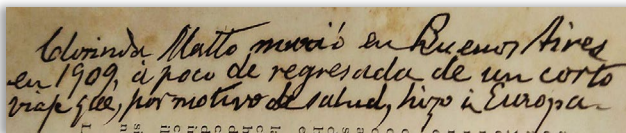 Clorinda Matto murió en Buenos Aires
en 1909, á poco de regresada de un corto
viaje que, por motivo de salud, hizo á Europa.